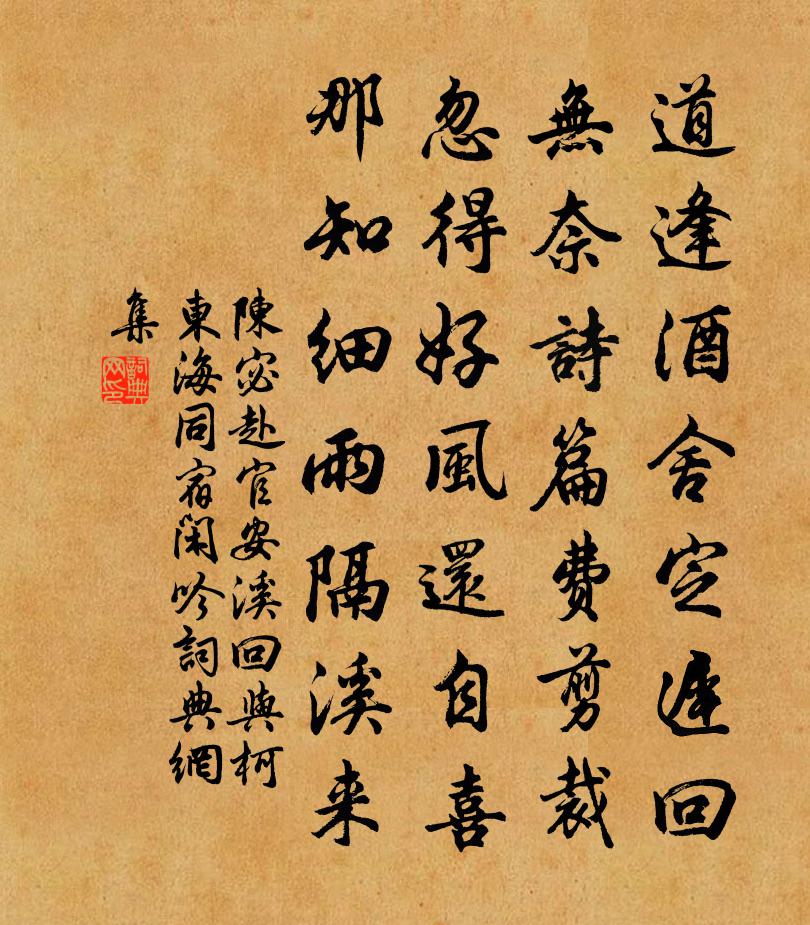 道逢酒舍定遲回
無奈詩篇費剪裁
忽得好風還自喜
那知细雨隔溪来
陳宓赴官安溪回與柯
東海同宿閑吟詞典網
集
詞典
网印